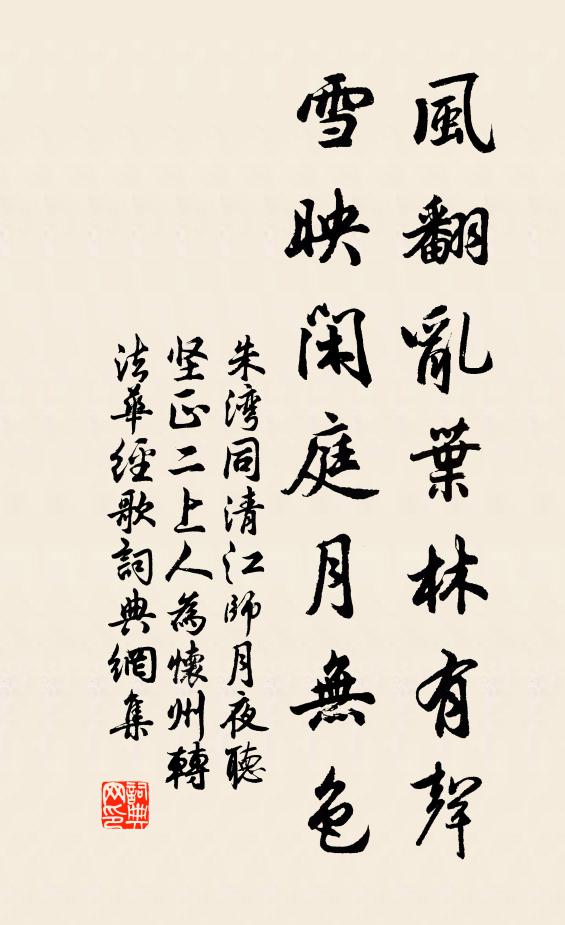 風翻亂葉林有聲
雪映閑庭月無色
朱湾同清江師月夜聽
坚正二上人為懷州轉
法華經歌詞典網集
詞典
网印